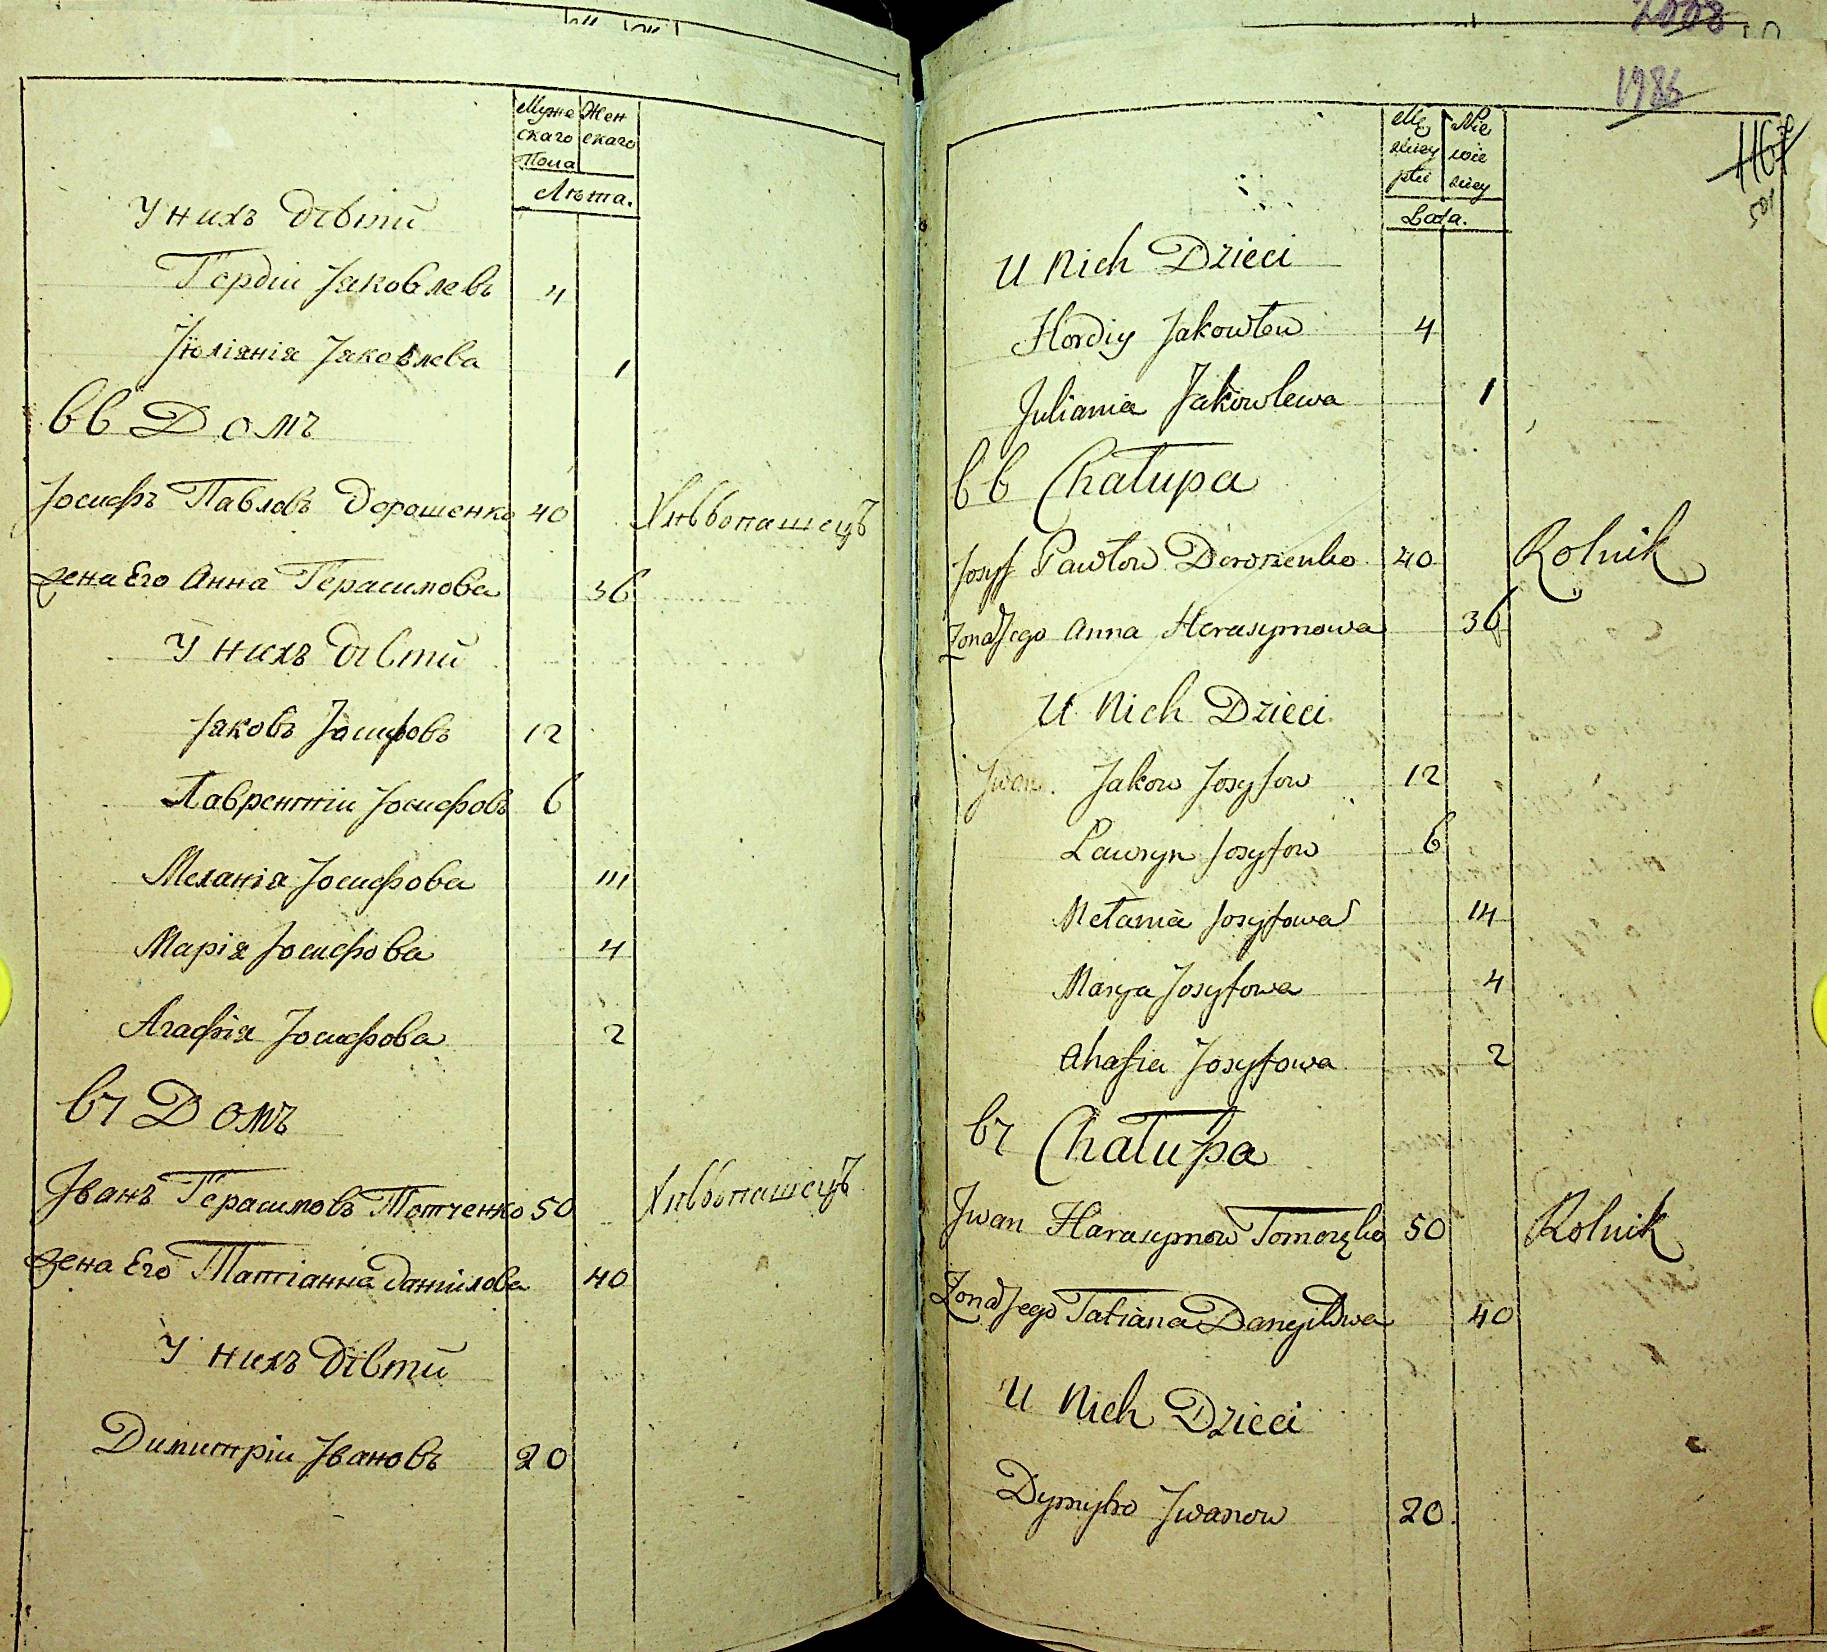 Муже Жен
скаго скаго
Пола
Лѣта.
У нихъ дѣти
Гордіи Іяковлевъ 4
Іюліянія Іяковлева 1
66 Домъ
Іосифъ Павловъ Дорошенко 40 Хлѣбопашецъ
Жена Его Анна Герасимова 36
У нихъ дѣти
Іяковъ Іосифовъ 12
Лаврентіи Іосифовъ 6
Меланія Іосифова 14
Марія Іосифова 4
Агафія Іосифова 2
67 Домъ
Іванъ Герасимовъ Тотченко 50 Хлѣбопашецъ
Жена Его Татіанна Даніилова 40
У нихъ дѣти
Димитріи Івановъ 20
2008
1986
1167
501
Mę Nie
zkiey wie
płci skiey
Lata.
U Nich Dzieci
Hordiy Jakowlew 4
Juliania Jakowlewa 1
66 Chałupa
Josyf Pawłow Doroszenko 40 Rolnik
Żona Jego Anna Herasymowa 36
U Nich Dzieci
Jwan. Jakow Josyfow 12
Lawryn Josyfow 6
Mełania Josyfowa 14
Marya Josyfowa 4
Ahafia Josyfowa 2
67 Chałupa
Jwan Harasymow 50 Rolnik
Żona Jego Tatiana Danyłowa 40
U Nich Dzieci
Dymytro Jwanow 20.